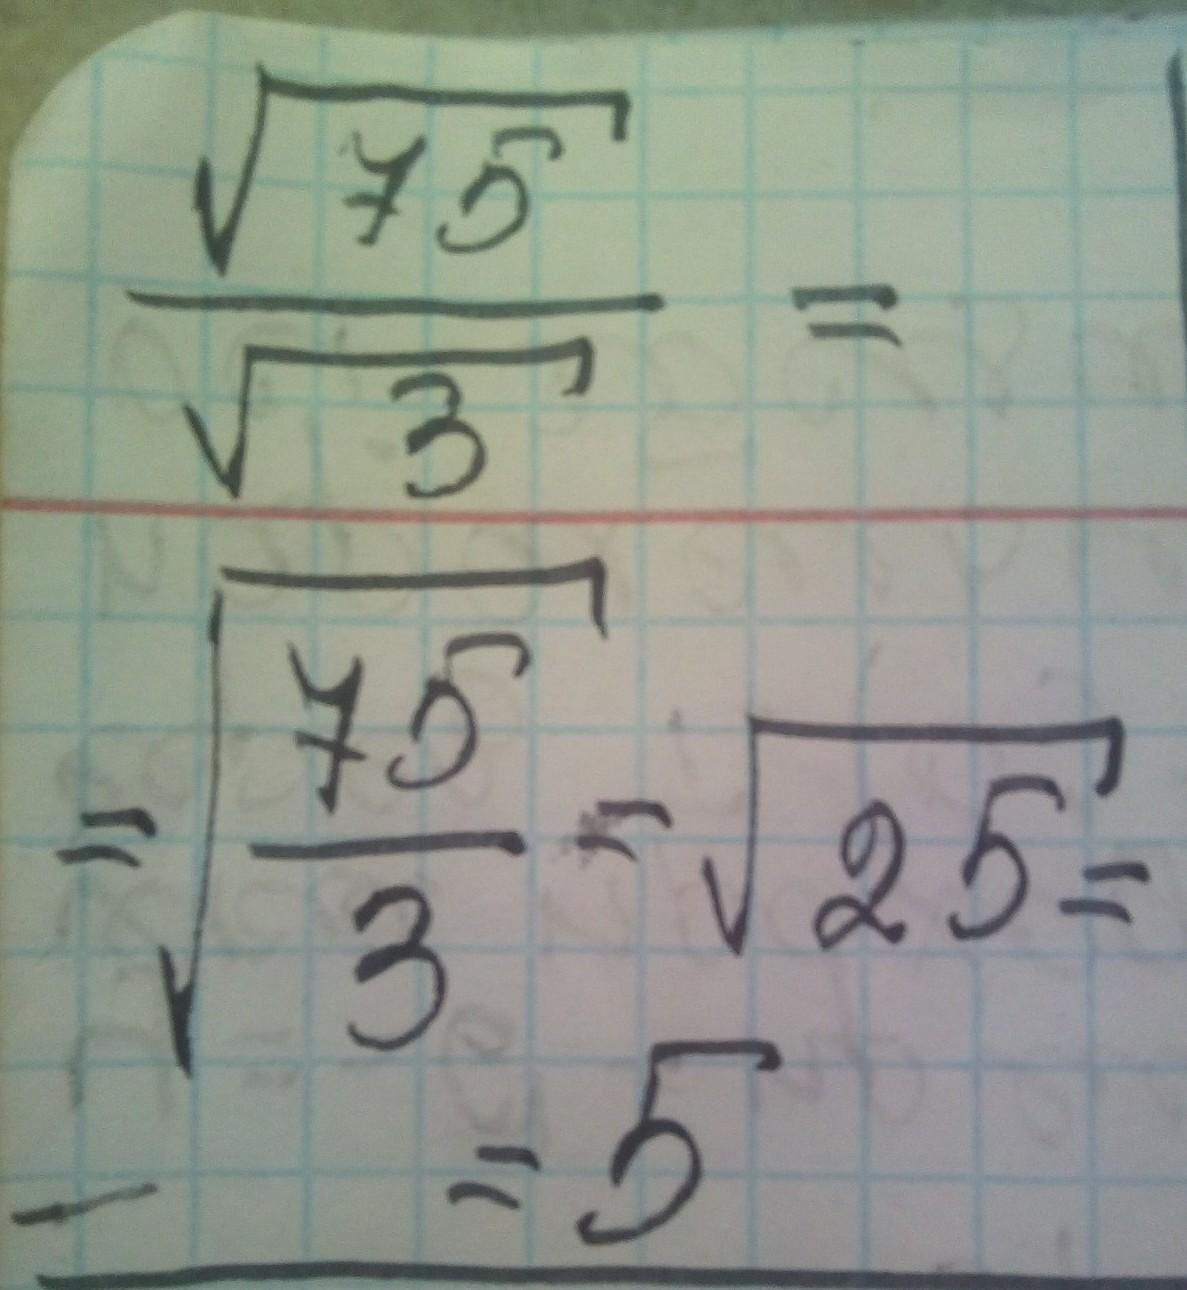 √75 / √3 =
= √(75/3) = √25 =
= 5